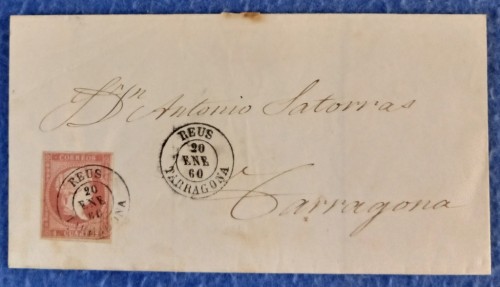 Dn Antonio Satorras
REUS
20
ENE
60
TARRAGONA
Tarragona
CORREOS
REUS
20
ENE
60